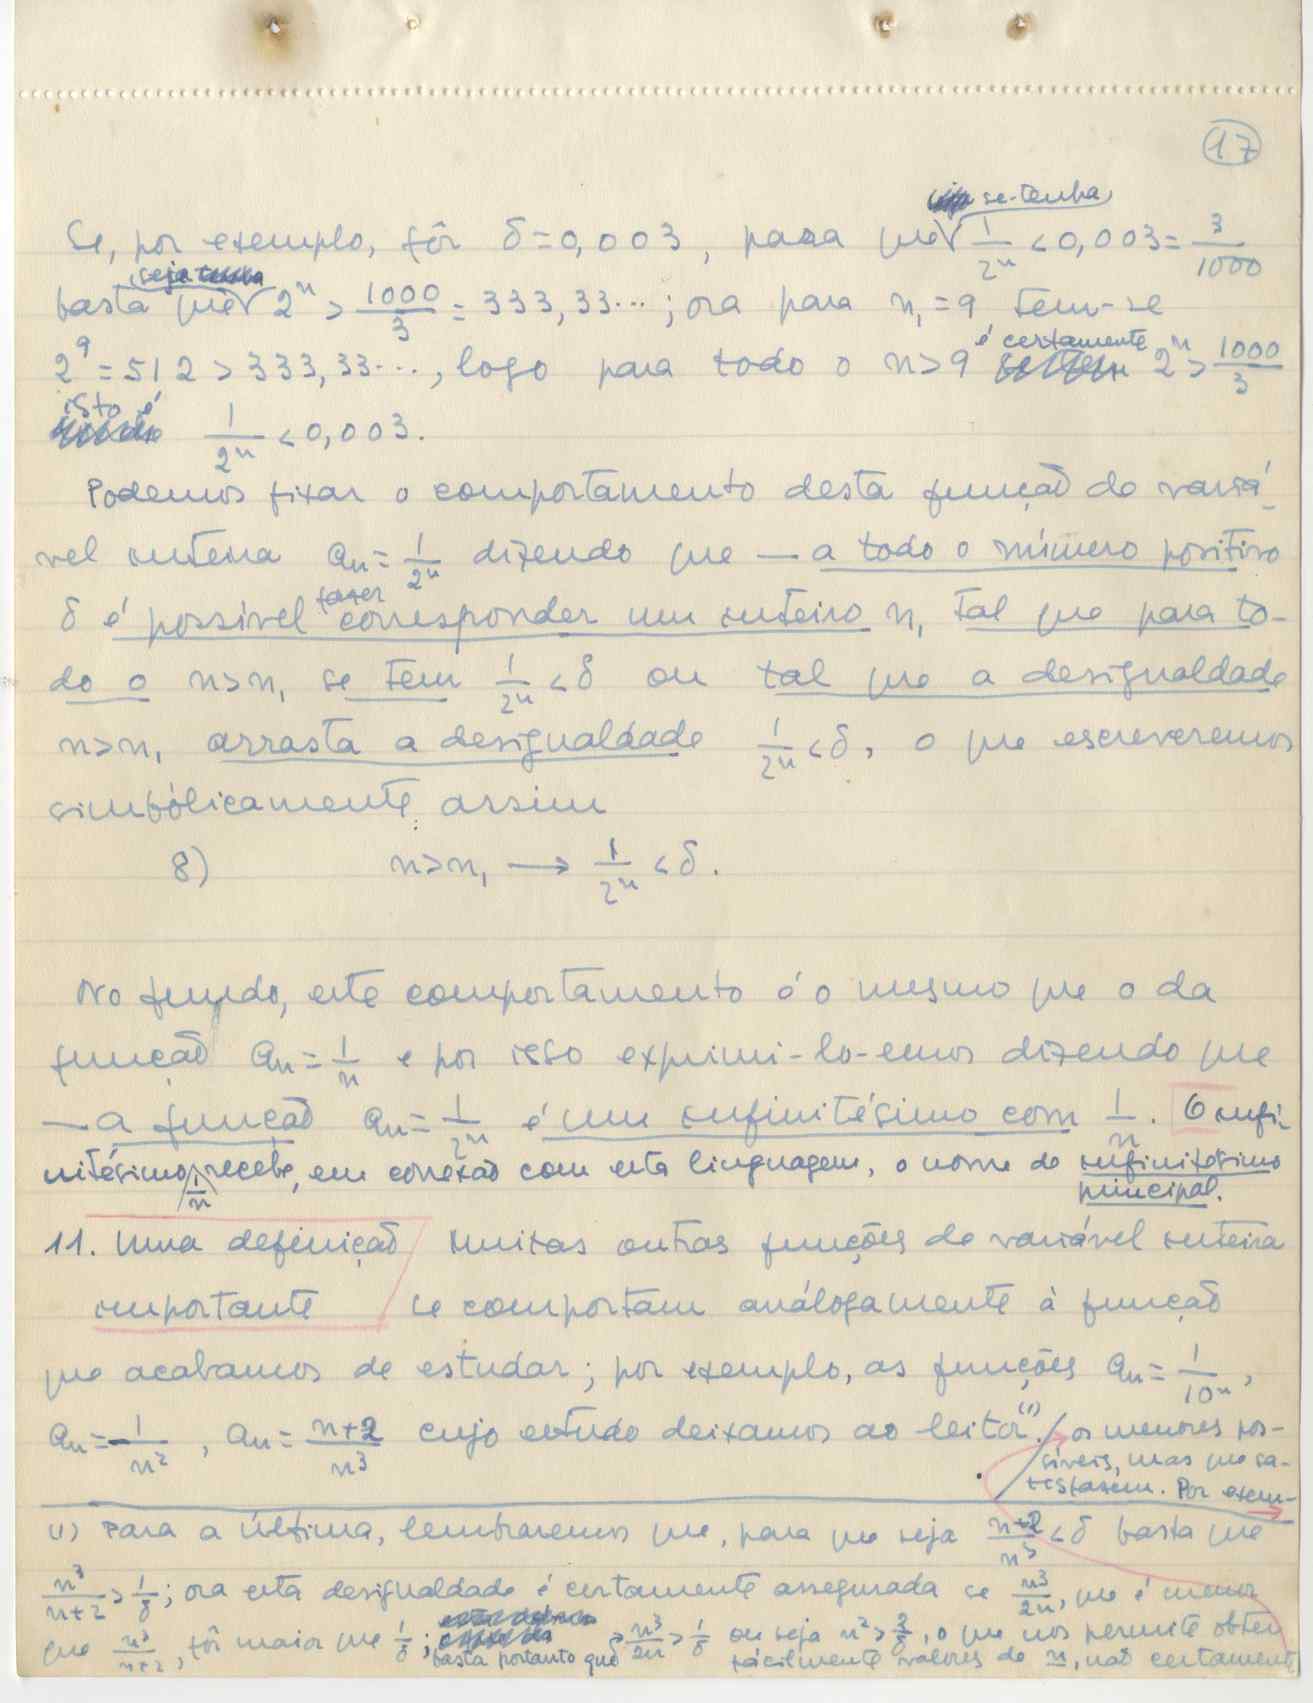 17
Se, por exemplo, fôr δ=0,003, para que se tenha 1/2ⁿ < 0,003 = 3/1000
basta que seja 2ⁿ > 1000/3 = 333,33...; ora para n₁=9 tem-se
2⁹ = 512 > 333,33..., logo para todo o n>9 é certamente 2ⁿ > 1000/3
isto é 1/2ⁿ < 0,003.
Podemos fixar o comportamento desta função de variá-
vel inteira aₙ = 1/2ⁿ dizendo que — a todo o número positivo
δ é possível fazer corresponder um inteiro n₁ tal que para to-
do o n>n₁ se tem 1/2ⁿ < δ ou tal que a desigualdade
n>n₁ arrasta a desigualdade 1/2ⁿ < δ, o que escreveremos
simbólicamente assim:
8) n>n₁ → 1/2ⁿ < δ.
No fundo, este comportamento é o mesmo que o da
função aₙ = 1/n e por isso exprimi-lo-emos dizendo que
— a função aₙ = 1/2ⁿ é um infinitésimo com 1/n. O infi-
nitésimo 1/n recebe, em conexão com esta linguagem, o nome de infinitésimo
principal.
11. Uma definição Muitas outras funções de variável inteira
importante se comportam análogamente à função
que acabamos de estudar; por exemplo, as funções aₙ = 1/10ⁿ,
aₙ = 1/n², aₙ = n+2/n³ cujo estudo deixamos ao leitor⁽¹⁾. os menores pos-
síveis, mas que sa-
tisfazem. Por exem-
(1) Para a última, lembraremos que, para que seja n+2/n³ < δ basta que
n³/n+2 > 1/δ; ora esta desigualdade é certamente assegurada se n³/2n, que é menor
que n³/n+2, fôr maior que 1/δ; basta portanto que n³/2n > 1/δ ou seja n² > 2/δ, o que nos permite obter
fácilmente valores de n, não certamente